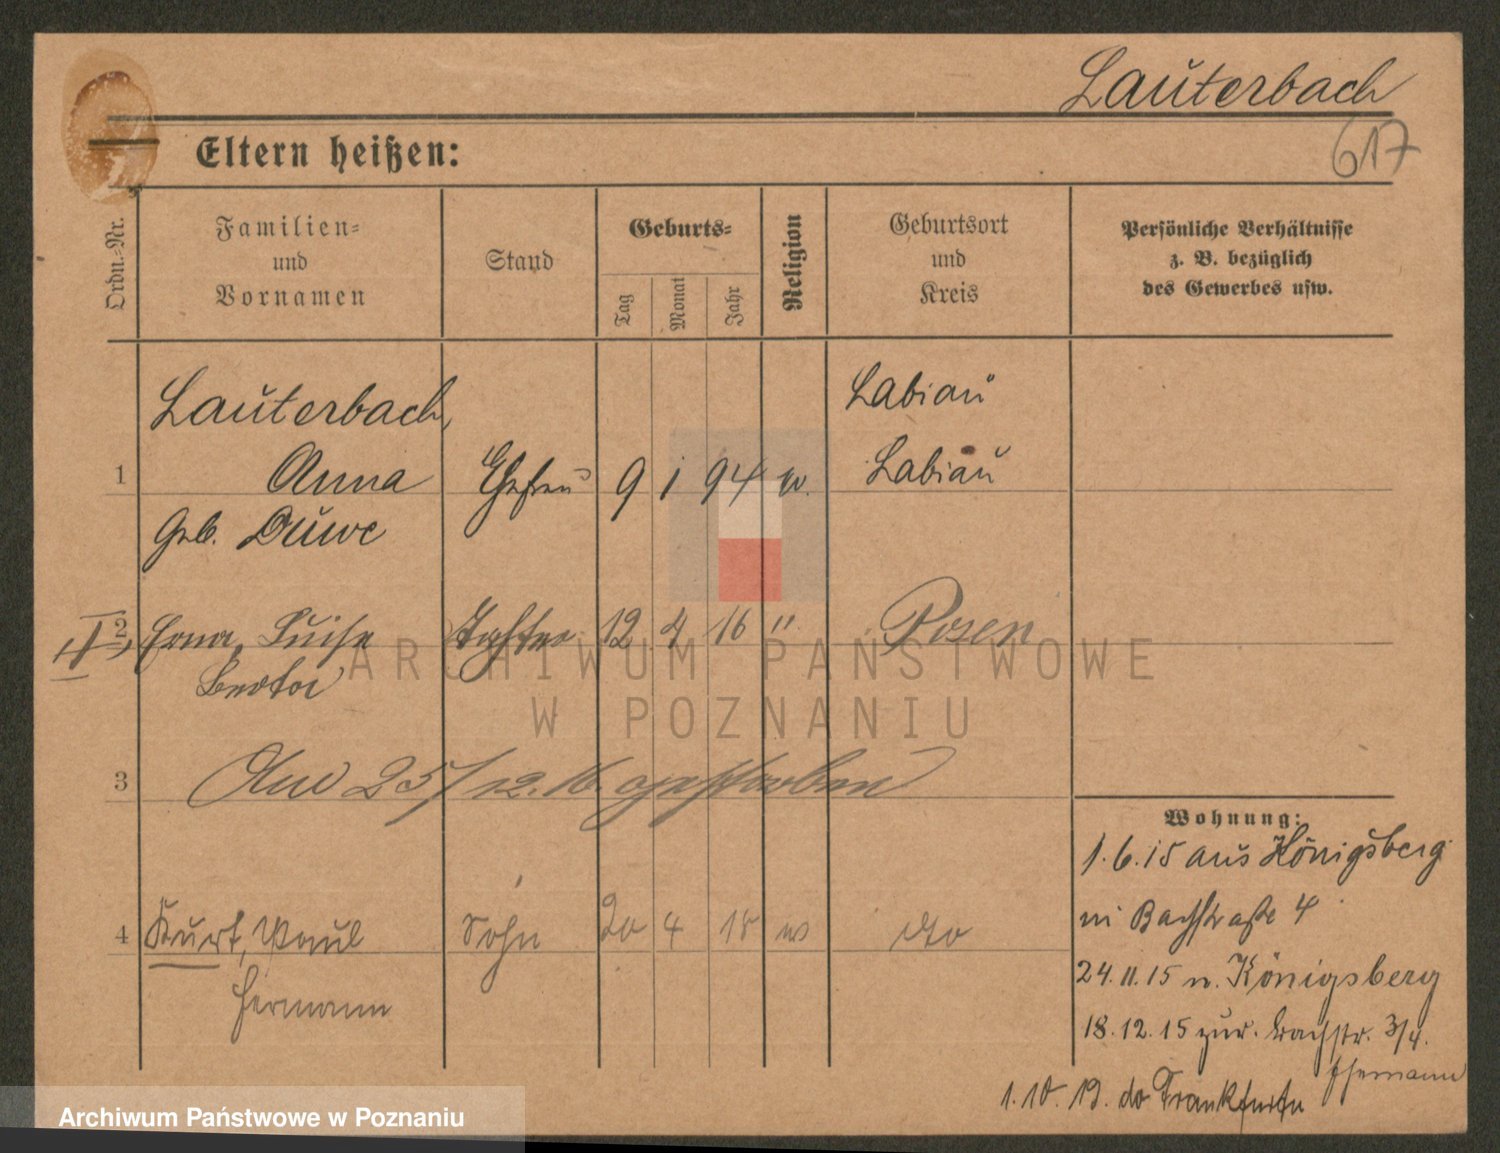 Lauterbach
617
Eltern heißen:
Ordn.-Nr.
Familien-
und
Vornamen
Stand
Geburts-
Tag
Monat
Jahr
Religion
Geburtsort
und
Kreis
Persönliche Verhältnisse
z. B. bezüglich
des Gewerbes usw.
Lauterbach,
Labiau
1 Anna Ehefrau 9 1 94 w. Labiau
geb. Duwe
2 Erna, Luise Tochter 12 4 16 " Posen
3 Am 25/12.16. gestorben
Wohnung:
1.6.15 aus Königsberg
in Bachstraße 4
4 Kurt, Paul Sohn 20 4 18 w dto
Hermann
24.11.15 n. Königsberg
18.12.15 zur. Bachstr. 3/4.
Ehemann
1.10.19. do
ARCHIWUM PAŃSTWOWE
W POZNANIU
Archiwum Państwowe w Poznaniu